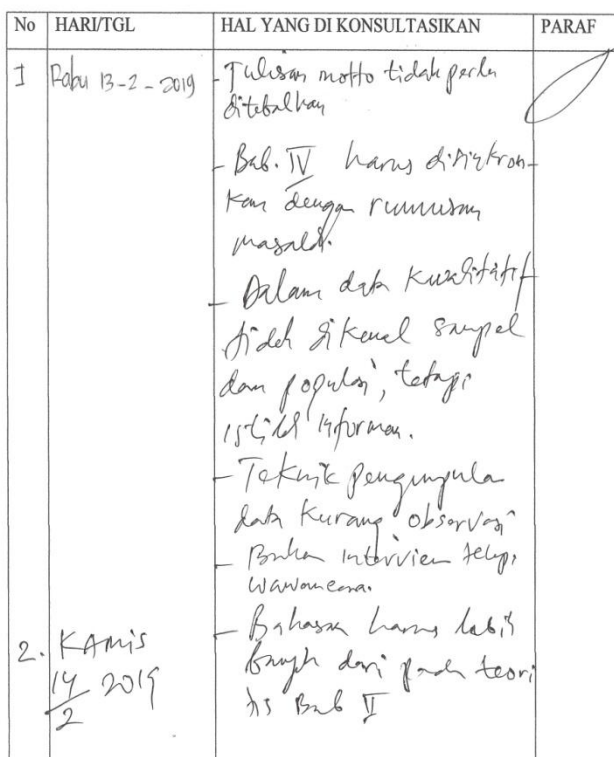 No HARI/TGL HAL YANG DI KONSULTASIKAN PARAF
I Rabu 13-2-2019 - Tulisan motto tidak perlu
ditebalkan
- Bab. IV harus disinkron-
kan dengan rumusan
masalah.
- Dalam data Kualitatif
tidak dikenal sampel
dan populasi, tetapi
istilah informan.
- Teknik pengumpula
data kurang observasi
- Bukan interview tetapi
wawancara.
2. KAMIS - Bahasan harus lebih
14/2 2019 banyak dari pada teori
Bab II